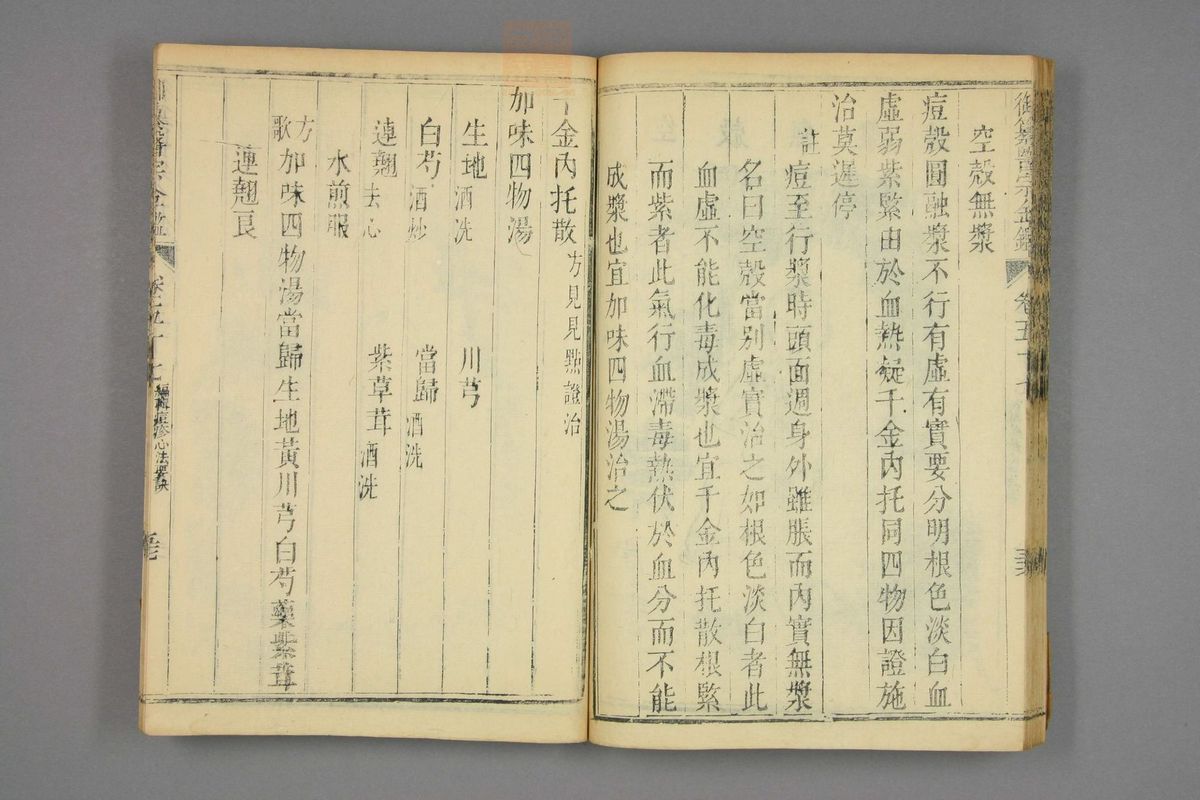 御纂醫宗金鑑 卷五十七
空殼無漿
痘殼圓融漿不行有虛有實要分明根色淡白血
虛弱紫緊由於血熱凝千金內托同四物因證施
治莫遲停
註痘至行漿時頭面週身外雖脹而內實無漿
名曰空殼當別虛實治之如根色淡白者此
血虛不能化毒成漿也宜千金內托散根緊
而紫者此氣行血滯毒熱伏於血分而不能
成漿也宜加味四物湯治之
千金內托散方見見點證治
加味四物湯
生地酒洗 川芎
白芍酒炒 當歸酒洗
連翹去心 紫草茸酒洗
水煎服
方歌加味四物湯當歸生地黃川芎白芍藥紫茸
連翹良
編輯痘疹心法要訣